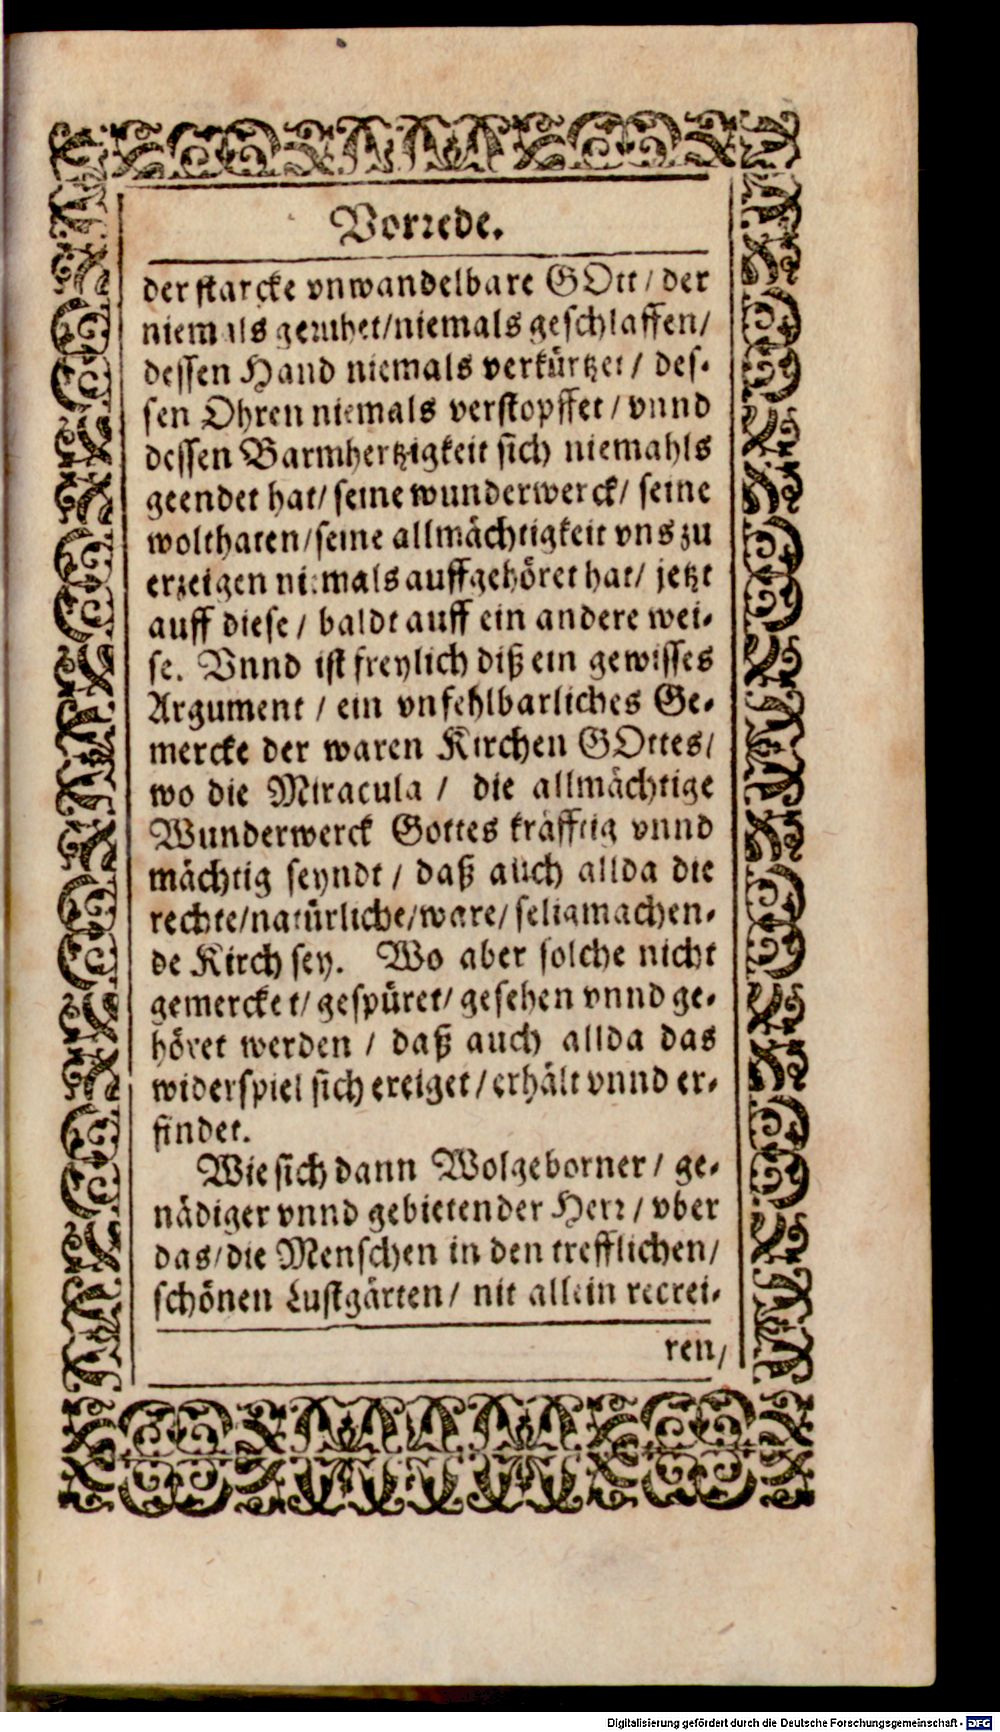 Vorrede.
der starcke vnwandelbare GOtt / der
niemals geruhet/niemals geschlaffen/
dessen Hand niemals verkürtzet / des-
sen Ohren niemals verstopffet / vnnd
dessen Barmhertzigkeit sich niemahls
geendet hat/ seine wunderwerck/ seine
wolthaten/seine allmächtigkeit vns zu
erzeigen niemals auffgehöret hat/ jetzt
auff diese / baldt auff ein andere wei-
se. Vnnd ist freylich diß ein gewisses
Argument / ein vnfehlbarliches Ge-
mercke der waren Kirchen GOttes/
wo die Miracula / die allmächtige
Wunderwerck Gottes kräfftig vnnd
mächtig seyndt / daß auch allda die
rechte/natürliche/ware/ seligmachen-
de Kirch sey. Wo aber solche nicht
gemercket/ gespüret/ gesehen vnnd ge-
höret werden / daß auch allda das
widerspiel sich ereiget / erhält vnnd er-
findet.
Wie sich dann Wolgeborner / ge-
nädiger vnnd gebietender Herr / vber
das/die Menschen in den trefflichen/
schönen Lustgärten/ nit allein recrei-
ren/
Digitalisierung gefördert durch die Deutsche Forschungsgemeinschaft - DFG